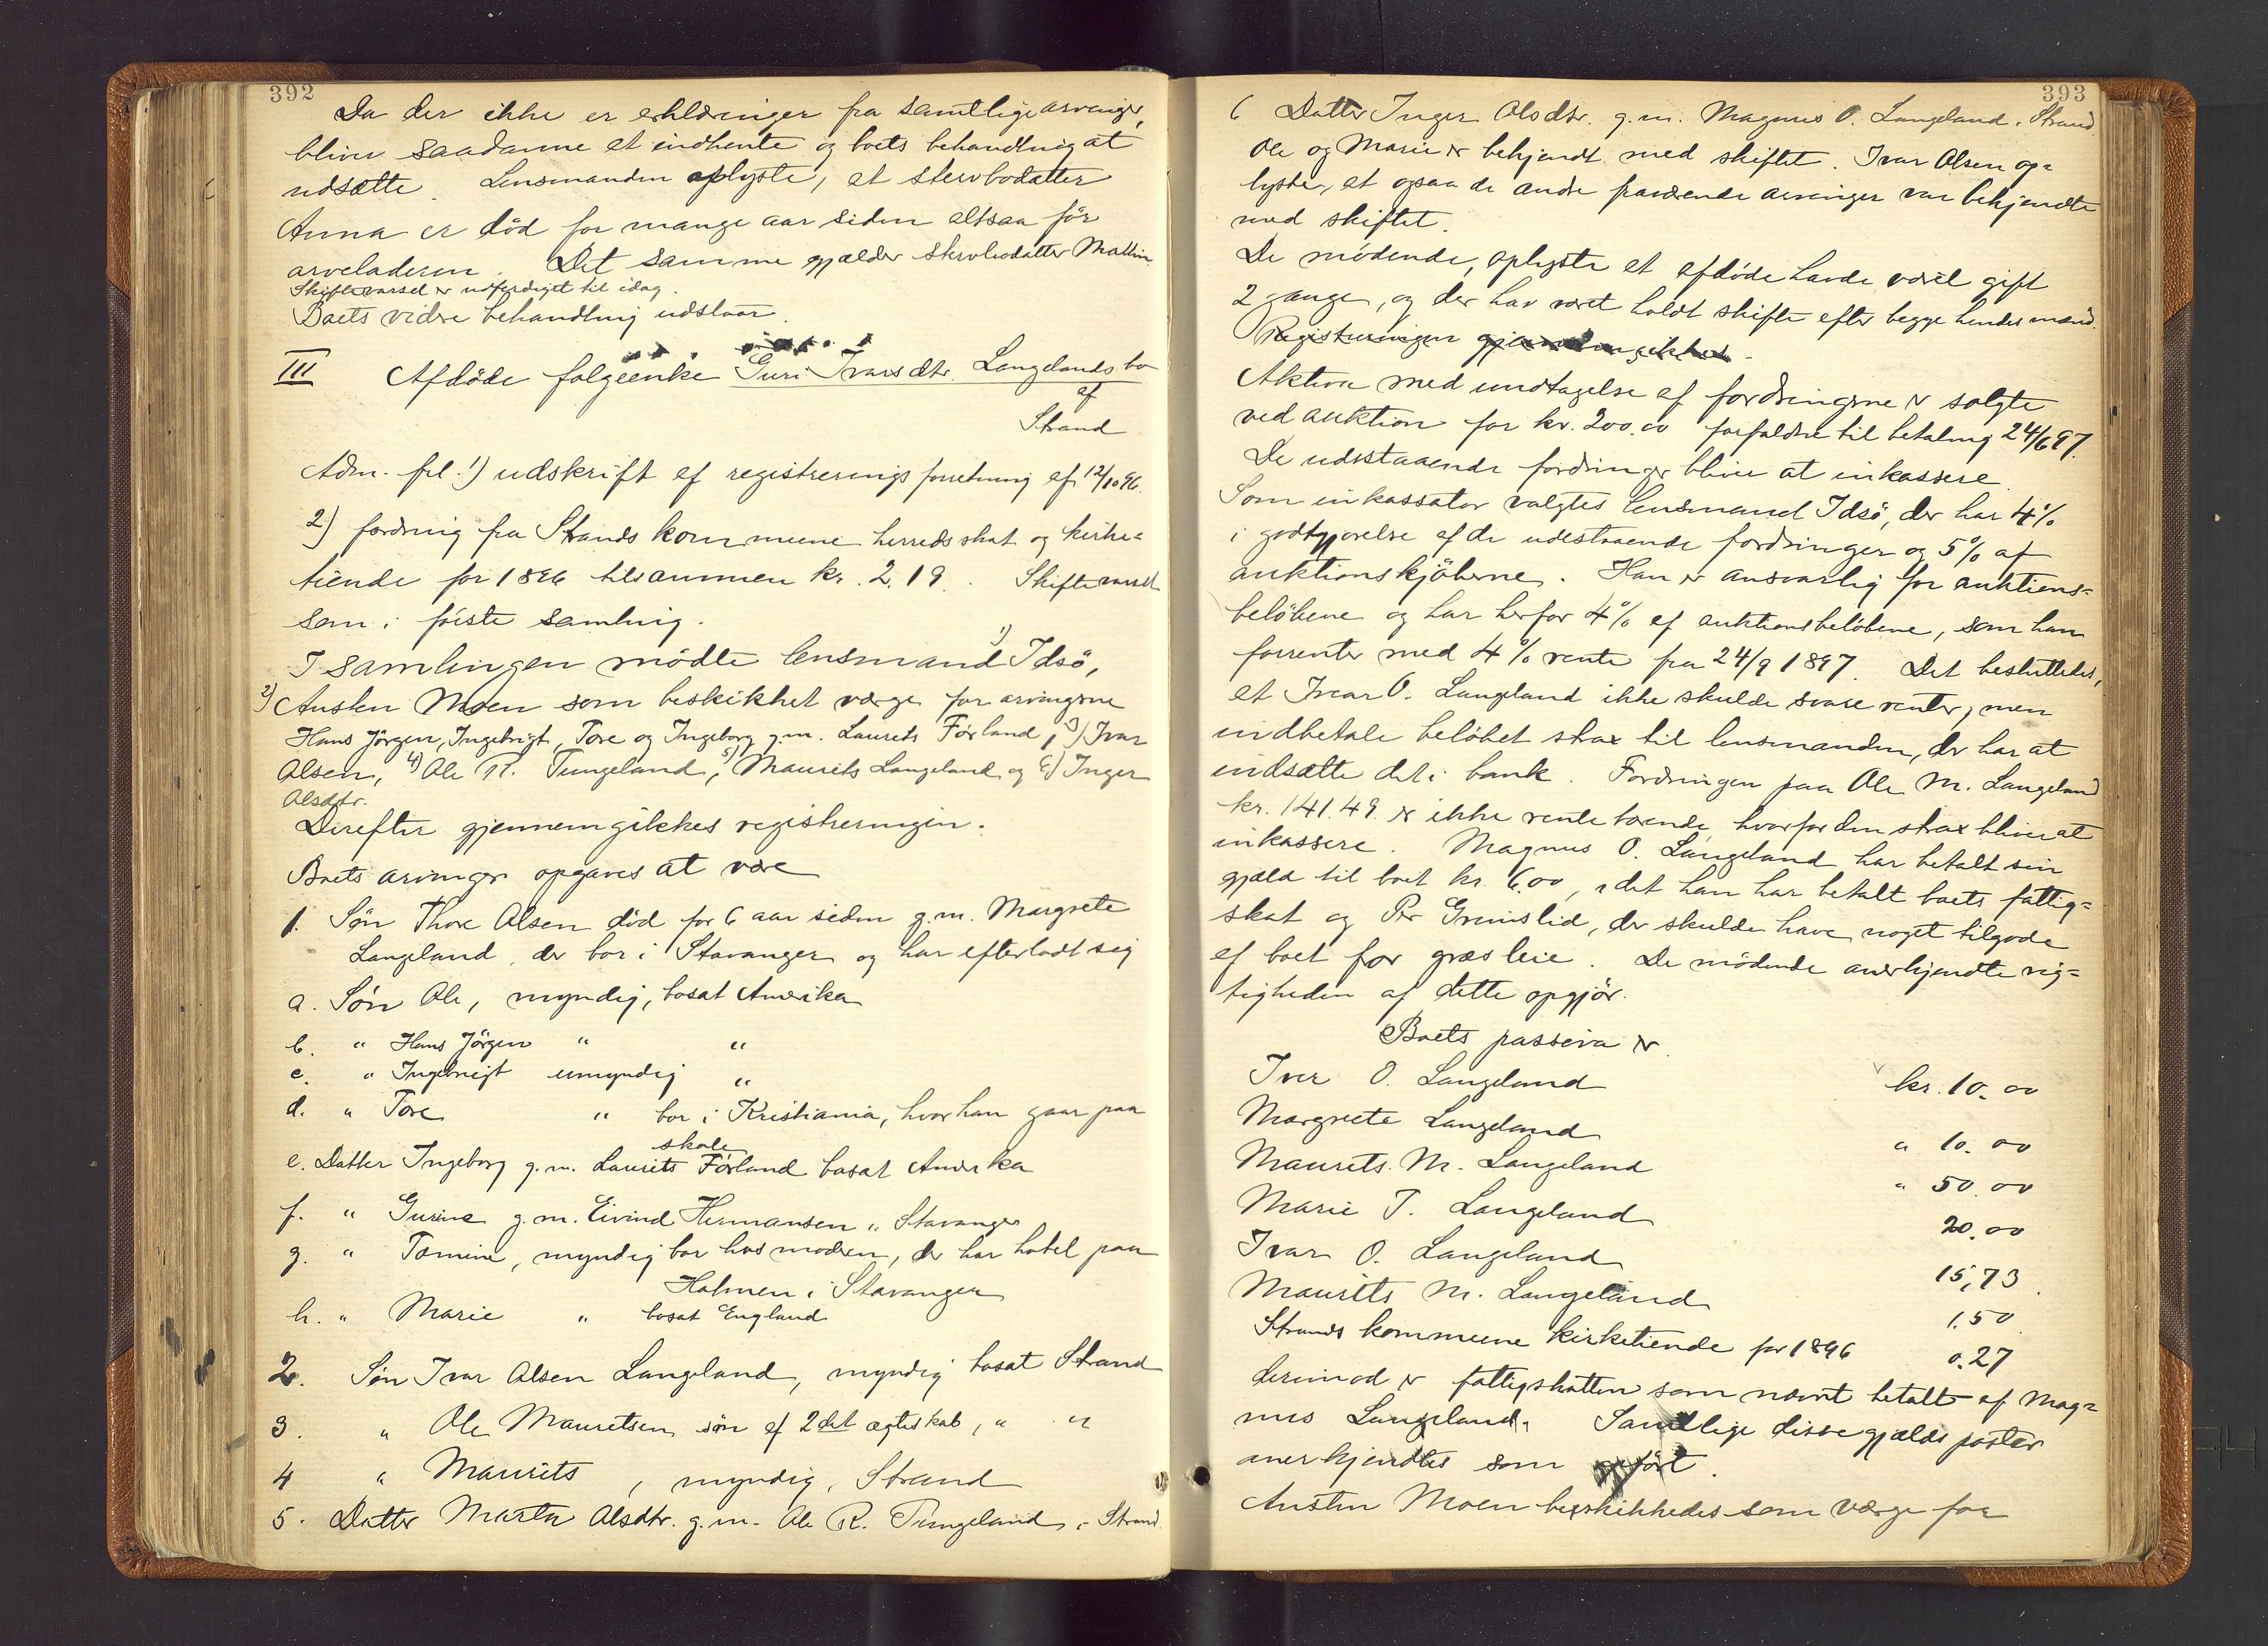 392
Da der ikke er erklæringer fra samtlige arvinger,
bliver saadanne at indhente og boets behandling at
udsætte. Lensmanden oplyste, at stervbodatter
Anna er död for mange aar siden altsaa för
arveladeren. Det samme gjælder stervbodatter Mathin
Skiftevarsel er udferdiget til idag.
Boets vidre behandling udstaar.
III Afdöde folgeenke Guri Ivarsdtr. Langelands bo
af
Strand
Adm. frl. 1) udskrift af registreringsforretning af 12/10 96.
2) fordring fra Strands kommune herredsskat og kirke=
tiende for 1896 tilsammen kr. 2.19. Skiftevarsel
som i förste samling.
I samlingen mödte 1) lensmand Idsö,
2) Austen Moen som beskikket værge for arvingerne
Hans Jörgen, Ingebrigt, Tore og Ingeborg g.m. Laurits Førland, 3) Ivar
Olsen, 4) Ole R. Tungeland, 5) Maurits Langeland og 6) Inger
Olsdtr.
Derefter gjennemgikkes registreringen.
Boets arvinger opgaves at være
1. Søn Thore Olsen død for 6 aar siden g.m. Margrete
Langeland, der bor i Stavanger og har efterladt sig
a. Søn Ole, myndig, bosat Amerika
b. " Hans Jörgen " "
c. " Ingebrigt umyndig "
d. " Tore " bor i Kristiania, hvor han gaar paa
skole
e. Datter Ingeborg g.m. Laurits Førland bosat Amerika
f. " Gurine g.m. Eivind Hermansen " Stavanger
g. " Tomine, myndig bor hos modren, der har hotel paa
Holmen i Stavanger
h. " Marie " bosat England
2. Søn Ivar Olsen Langeland, myndig bosat Strand
3. " Ole Mauretsen søn af 2det ægteskab, " "
4 " Maurits, myndig, Strand
5. Datter Marta Olsdtr. g.m. Ole R. Tungeland, i Strand.
393
6 Datter Inger Olsdtr. g.m. Magnus O. Langeland i Strand.
Ole og Marie er bekjendt med skiftet. Ivar Olsen op=
lyste, at ogsaa de andre fraværende arvinger var bekjendte
med skiftet.
De mödende, oplyste at afdöde havde været gift
2 gange, og der har været holdt skifte efter begge hendes mænd.
Registreringen gjennemgikkes.
Aktiva med undtagelse af fordringerne er solgte
ved auktion for kr. 200.00 forfaldne til betaling 24/6 97.
De udestaaende fordringer bliver at inkassere.
Som inkassator valgtes lensmand Idsö, der har 4%
i godtgjørelse af de udestaaende fordringer og 5% af
auktionskjöberne. Han er ansvarlig for auktions=
belöbene og har herfor 4% af auktionsbelöbene, som han
forrenter med 4% rente fra 24/9 1897. Det besluttedes,
at Ivar O. Langeland ikke skulde svare renter, men
indbetale belöbet strax til lensmanden, der har at
indsætte det i bank. Fordringen paa Ole M. Langeland
kr. 141.49. er ikke rentebærende, hvorfor den strax bliver at
inkassere. Magnus O. Langeland har betalt sin
gjæld til boet kr. 6.00, idet han har betalt boets fattig=
skat og Per Grimslid, der skulde have noget tilgode
af boet for græsleie. De mödende anerkjendte rig=
tigheden af dette opgjör.
Boets passiva er
Iver O. Langeland kr. 10.00
Margrete Langeland " 10.00
Maurits M. Langeland " 50.00
Marie T. Langeland 20.00
Ivar O. Langeland 15,73.
Maurits M. Langeland 1.50
Strands kommune kirketiende for 1896 0.27
derimod er fattigskatten som nævnt betalt af Mag=
nus Langeland. Samtlige disse gjældsposter
anerkjendtes som anfört.
Austen Moen beskikkedes som værge for